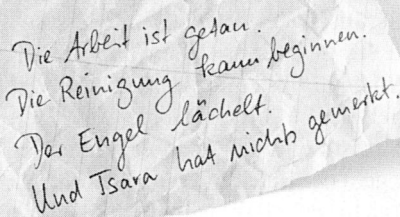 Die Arbeit ist getan.
Die Reinigung kann beginnen.
Der Engel lächelt.
Und Tsara hat nichts gemerkt.